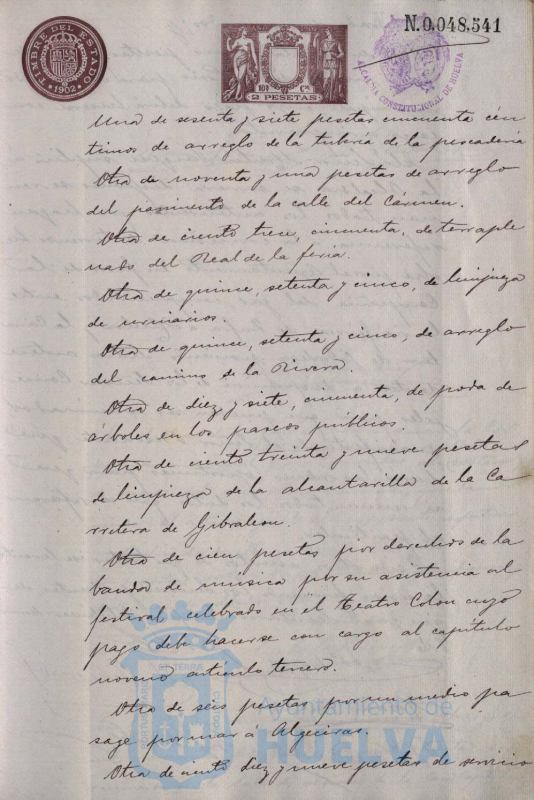 TIMBRE DEL ESTADO
1902
10ª Cª
2 PESETAS
N.0.048.541
ALCALDIA CONSTITUCIONAL DE HUELVA
Una de sesenta y siete pesetas cincuenta cén
timos de arreglo de la tubería de la pescadería
Otra de noventa y una pesetas de arreglo
del pavimento de la calle del Cármen.
Otra de ciento trece, cincuenta, de terraple
nado del Real de la feria.
Otra de quince, setenta y cinco, de limpieza
de urinarios.
Otra de quince, setenta y cinco, de arreglo
del camino de la Rivera.
Otra de diez y siete, cincuenta, de poda de
árboles en los paseos públicos.
Otra de ciento treinta y nueve pesetas
de limpieza de la alcantarilla de la Ca
rretera de Gibraleon.
Otra de cien pesetas por derechos de la
banda de musica por su asistencia al
festival celebrado en el Teatro Colon cuyo
pago debe hacerse con cargo al capítulo
noveno articulo tercero.
Otra de seis pesetas por un medio pa
sage por mar á Algeciras.
Otra de ciento diez y nueve pesetas de servicio
Ayuntamiento de
HUELVA